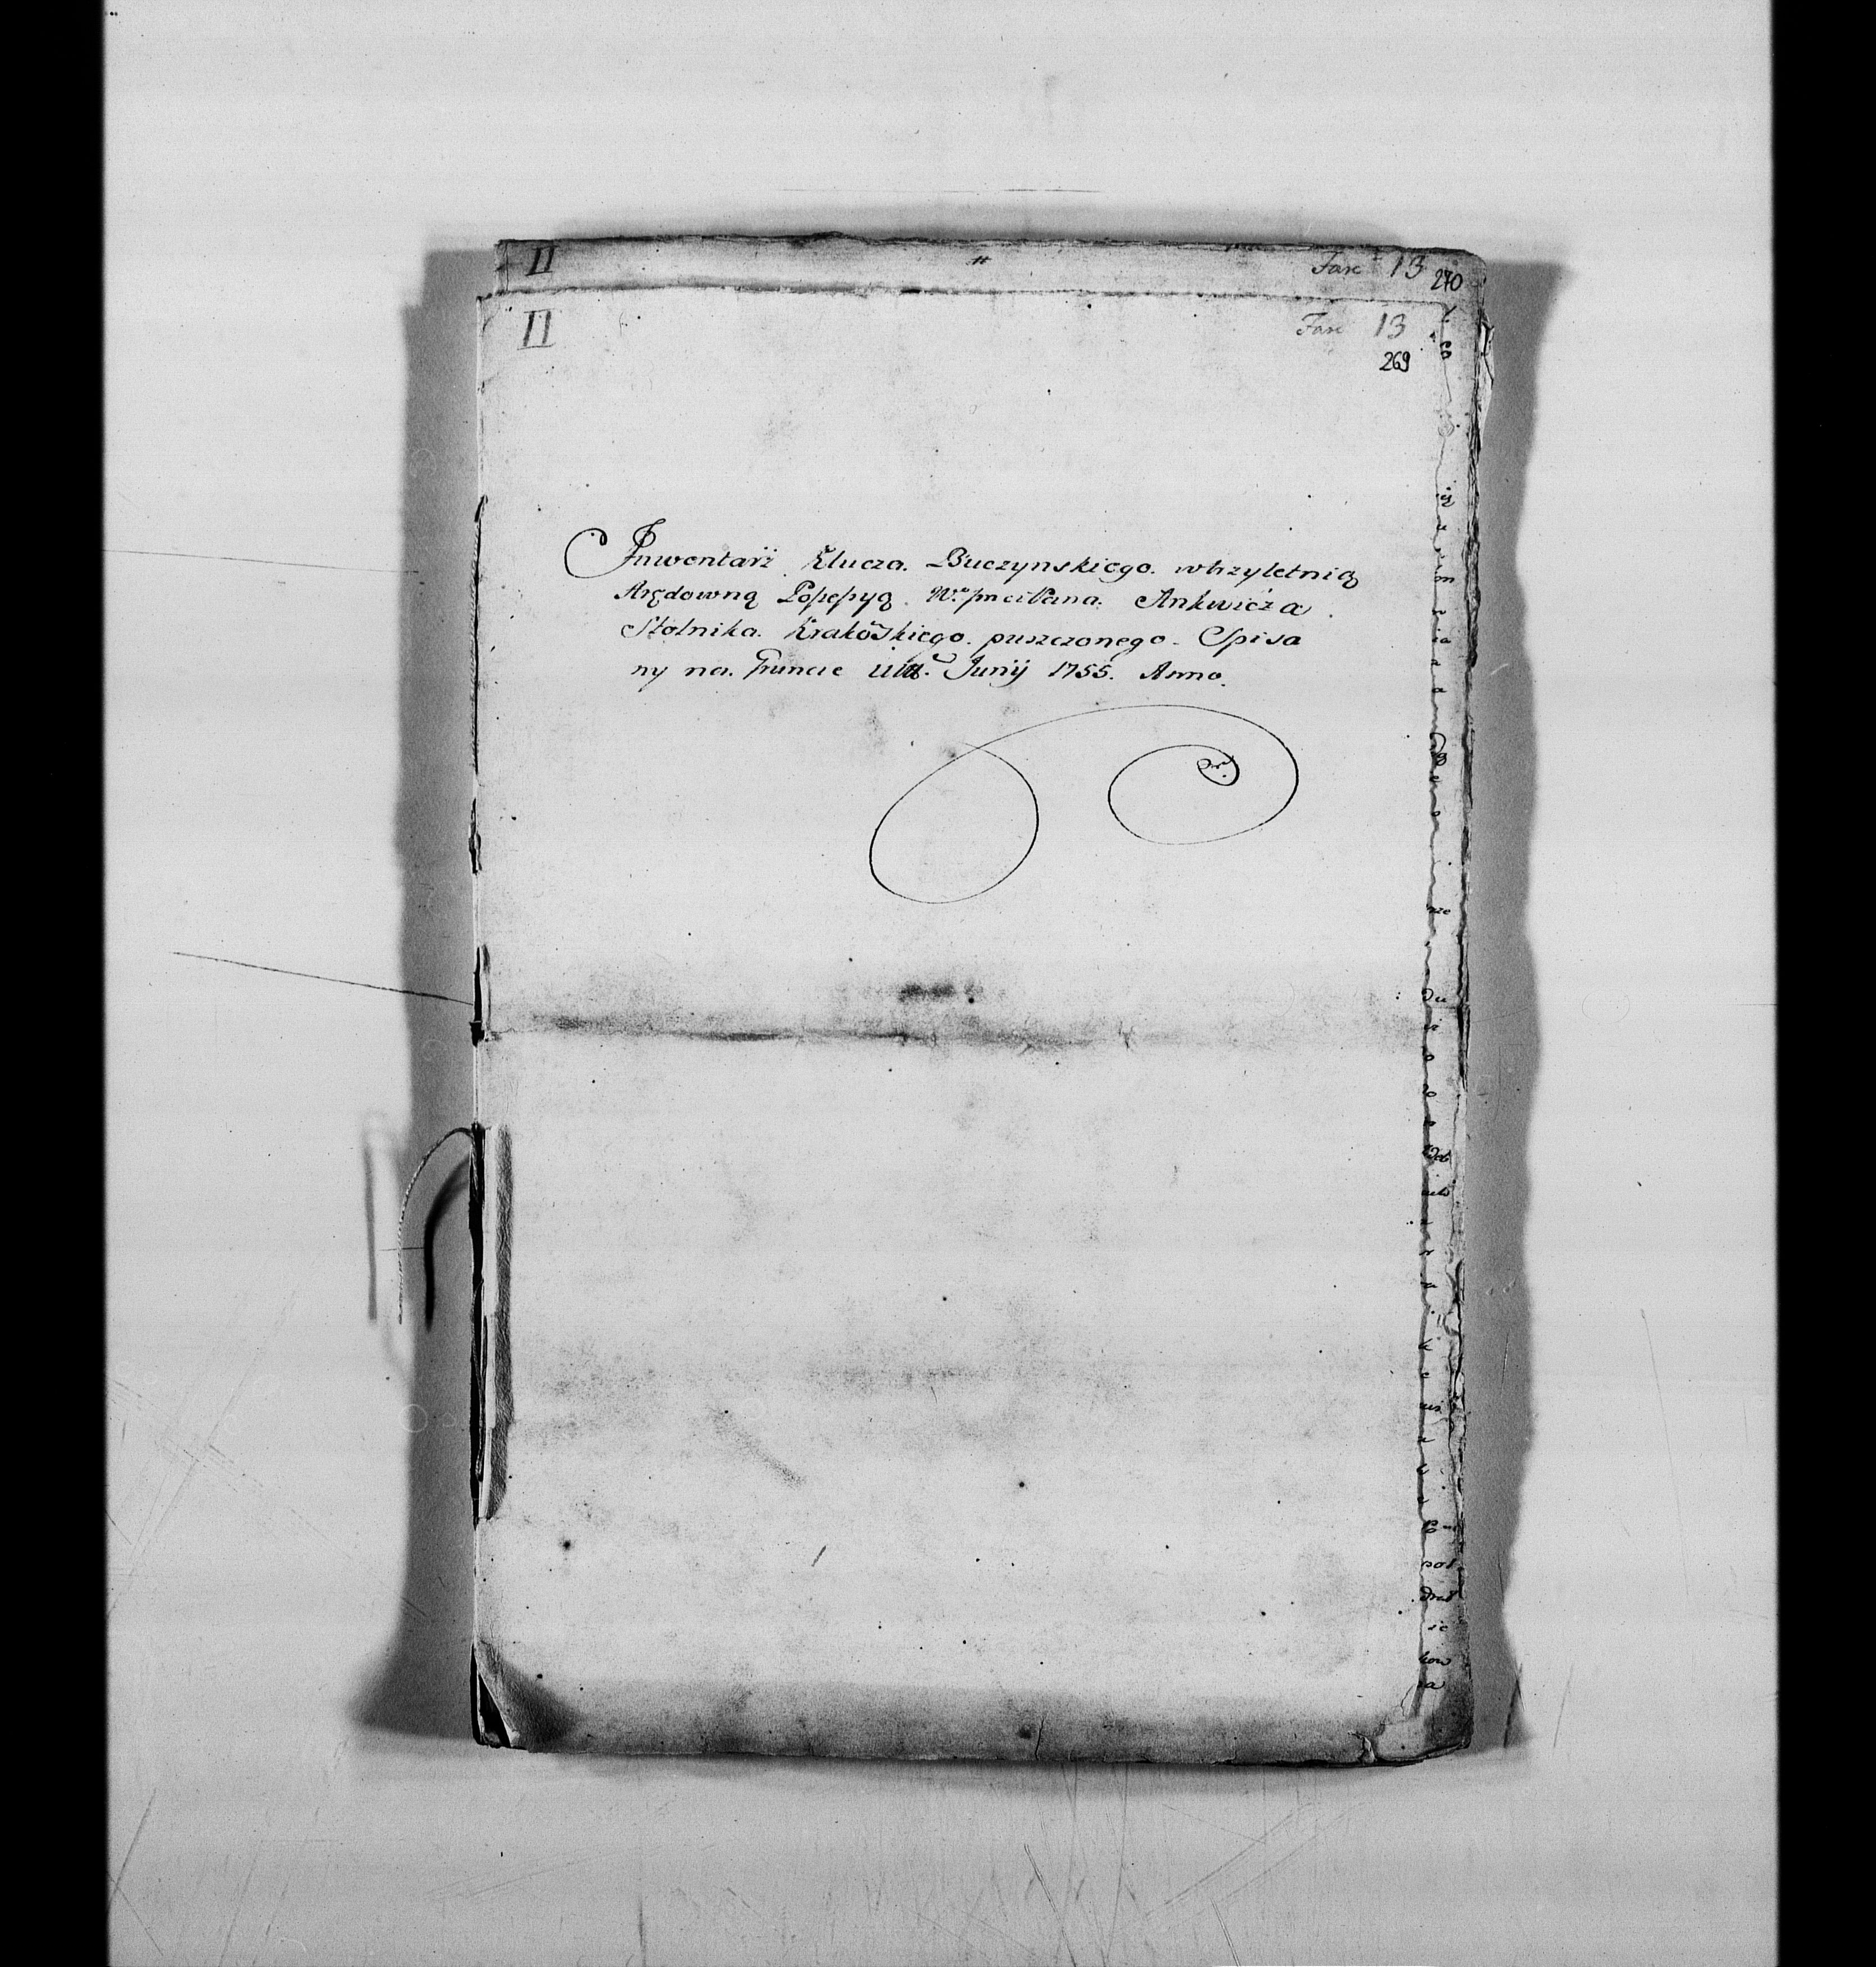 II Fasc 13 270
II Fasc 13
269
Inwentarz Klucza. Buczynskiego. w trzyletnią
Arędowną Possessyą. Wo Pana. Ankwicza
Stolnika. Krakoskiego. puszczonego. Spisa
ny na. Gruncie Junij 1755. Anno.